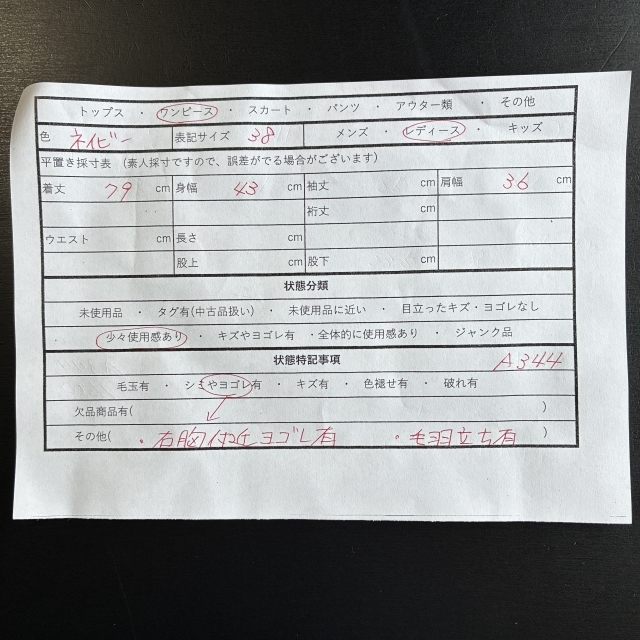 トップス ・ ワンピース ・ スカート ・ パンツ ・ アウター類 ・ その他
色 ネイビー 表記サイズ 38 メンズ ・ レディース ・ キッズ
平置き採寸表 (素人採寸ですので、誤差がでる場合がございます)
着丈 79 cm 身幅 43 cm 袖丈 cm 肩幅 36 cm
裄丈 cm
ウエスト cm 長さ cm
股上 cm 股下 cm
状態分類
未使用品 ・ タグ有(中古品扱い) ・ 未使用品に近い ・ 目立ったキズ・ヨゴレなし
少々使用感あり ・ キズやヨゴレ有 ・全体的に使用感あり ・ ジャンク品
状態特記事項 A344
毛玉有 ・ シミやヨゴレ有 ・ キズ有 ・ 色褪せ有 ・ 破れ有
欠品商品有( )
その他( ・右胸付近ヨゴレ有 ・毛羽立ち有 )